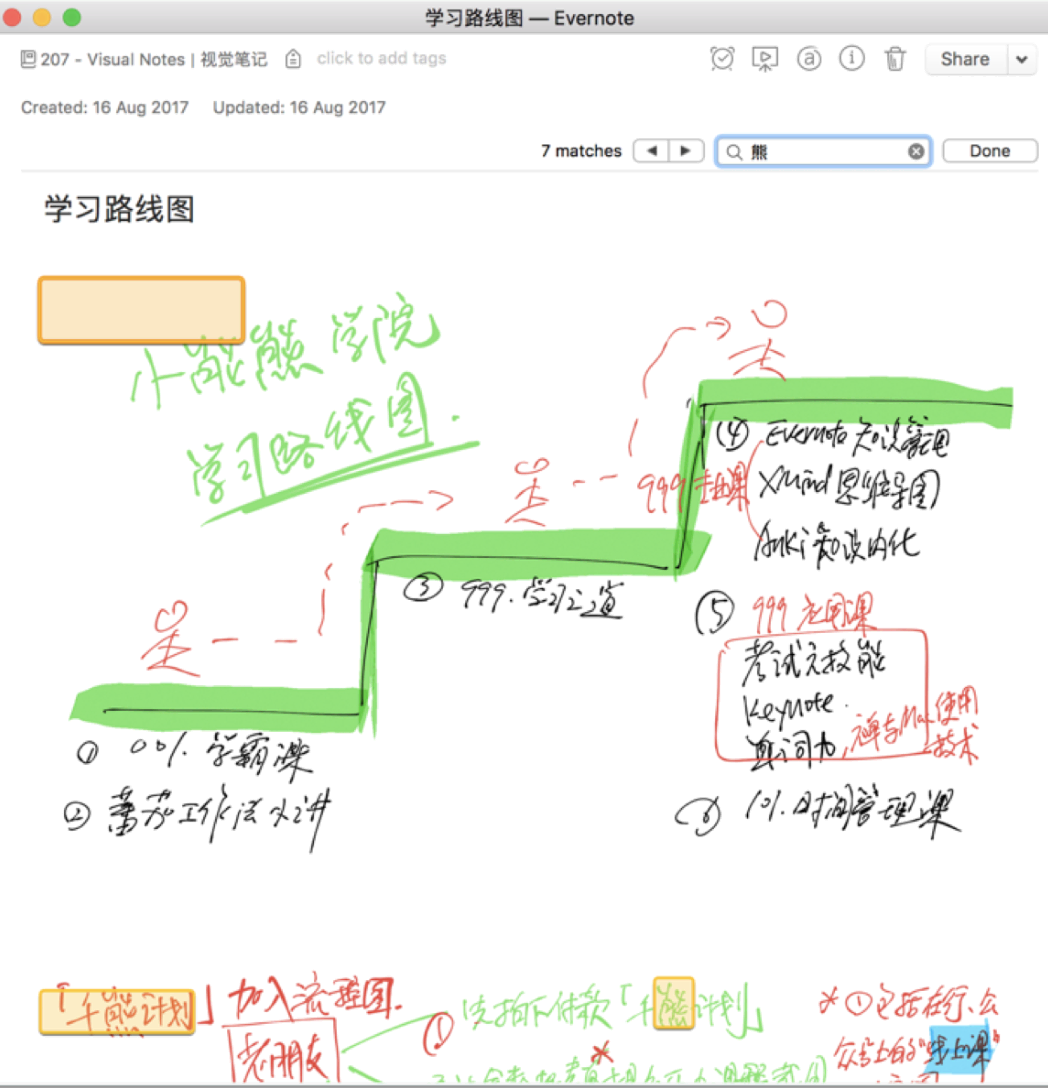 学习路线图 — Evernote
207 - Visual Notes | 视觉笔记 click to add tags
Share
Created: 16 Aug 2017 Updated: 16 Aug 2017
7 matches
熊
Done
学习路线图
小熊熊学院
学习路线图.
① 00%. 学霸课
② 蕃茄工作法小讲
③ 999. 学习之道
④ Evernote 知识管理
999 主题课
XMind 思维导图
Anki 知识内化
⑤ 999 应用课
考试元技能
Keynote.
单词力, 禅与Mac使用技术
⑥ 1%.时间管理课
「千熊计划」加入流程图.
老朋友
① 先拍下付款「千熊计划」
* ① 包括在行、公
众号上的"线上课"